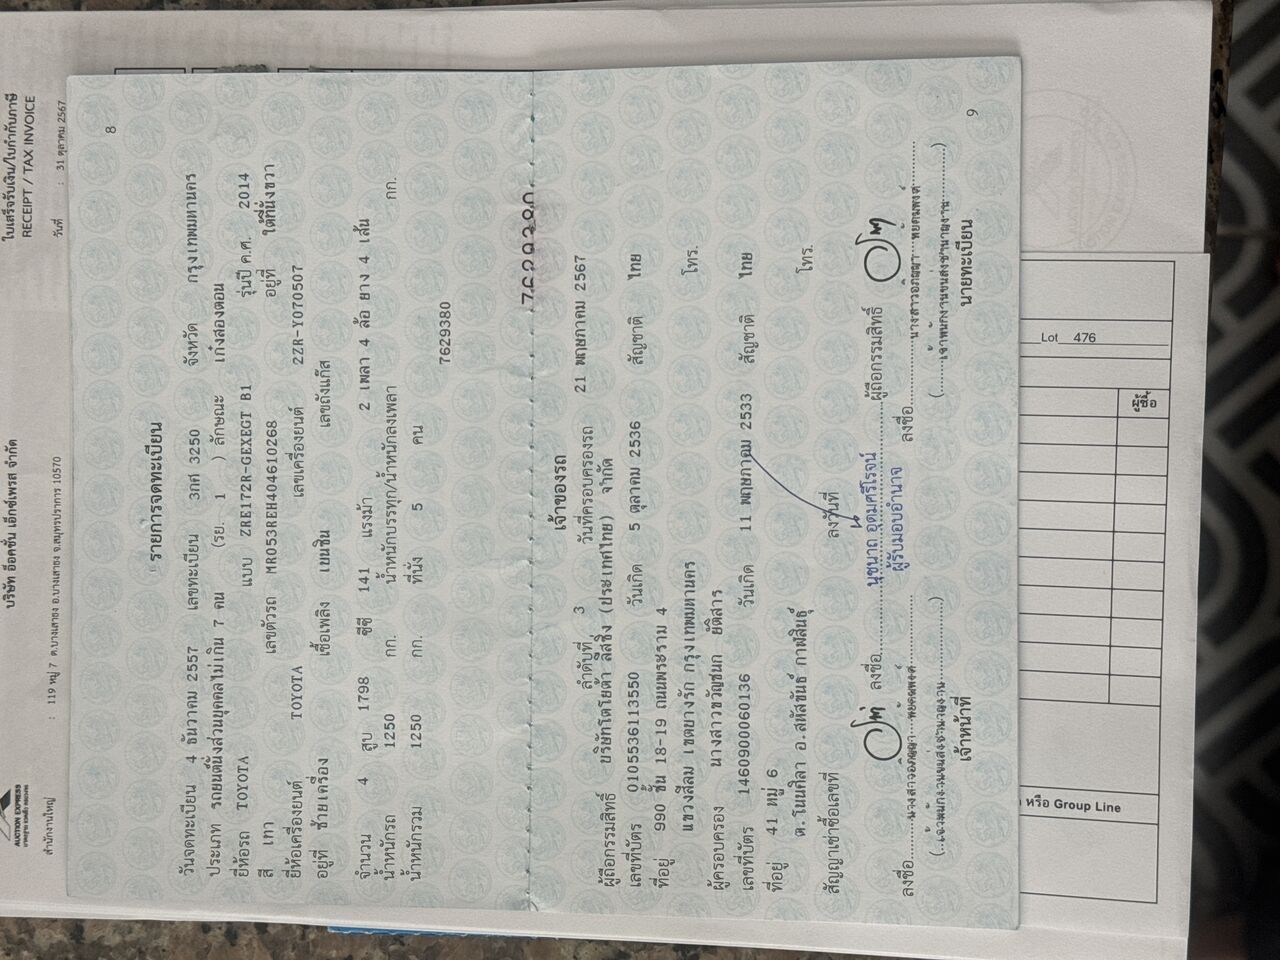 ใบเสร็จรับเงิน/ใบกำกับภาษี
RECEIPT / TAX INVOICE
วันที่ : 31 ตุลาคม 2567
บริษัท อ๊อคชั่น เอ็กซ์เพรส จำกัด
AUCTION EXPRESS
สำนักงานใหญ่ : 119 หมู่ 7 ต.บางเสาธง อ.บางเสาธง จ.สมุทรปราการ 10570
8
รายการจดทะเบียน
วันจดทะเบียน 4 ธันวาคม 2557 เลขทะเบียน 3กศ 3250 จังหวัด กรุงเทพมหานคร
ประเภท รถยนต์นั่งส่วนบุคคลไม่เกิน 7 คน (รย. 1 ) ลักษณะ เก๋งสองตอน
ยี่ห้อรถ TOYOTA แบบ ZRE172R-GEXEGT B1 รุ่นปี ค.ศ. 2014
สี เทา เลขตัวรถ MR053REH404610268 อยู่ที่ ใต้ที่นั่งขวา
ยี่ห้อเครื่องยนต์ TOYOTA เลขเครื่องยนต์ 2ZR-Y070507
อยู่ที่ ซ้ายเครื่อง เชื้อเพลิง เบนซิน เลขถังแก๊ส
จำนวน 4 สูบ 1798 ซีซี 141 แรงม้า 2 เพลา 4 ล้อ ยาง 4 เส้น
น้ำหนักรถ 1250 กก. น้ำหนักบรรทุก/น้ำหนักลงเพลา กก.
น้ำหนักรวม 1250 กก. ที่นั่ง 5 คน
7629380
เจ้าของรถ
ลำดับที่ 3 วันที่ครอบครองรถ 21 พฤษภาคม 2567
ผู้ถือกรรมสิทธิ์ บริษัทโตโยต้า ลีสซิ่ง (ประเทศไทย) จำกัด
เลขที่บัตร 0105536113550 วันเกิด 5 ตุลาคม 2536 สัญชาติ ไทย
ที่อยู่ 990 ชั้น 18-19 ถนนพระราม 4
แขวงสีลม เขตบางรัก กรุงเทพมหานคร โทร.
ผู้ครอบครอง นางสาวขวัญชนก ยติสาร
เลขที่บัตร 1460900060136 วันเกิด 11 พฤษภาคม 2533 สัญชาติ ไทย
ที่อยู่ 41 หมู่ 6
ต.โนนศิลา อ.สหัสขันธ์ กาฬสินธุ์ โทร.
สัญญาเช่าซื้อเลขที่ ลงวันที่
ลงชื่อ นุชนาถ อุดมศรีโรจน์ ผู้ถือกรรมสิทธิ์
ผู้รับมอบอำนาจ
ลงชื่อ ลงชื่อ
เจ้าหน้าที่ นายทะเบียน
9
Lot 476
ผู้ซื้อ
หรือ Group Line